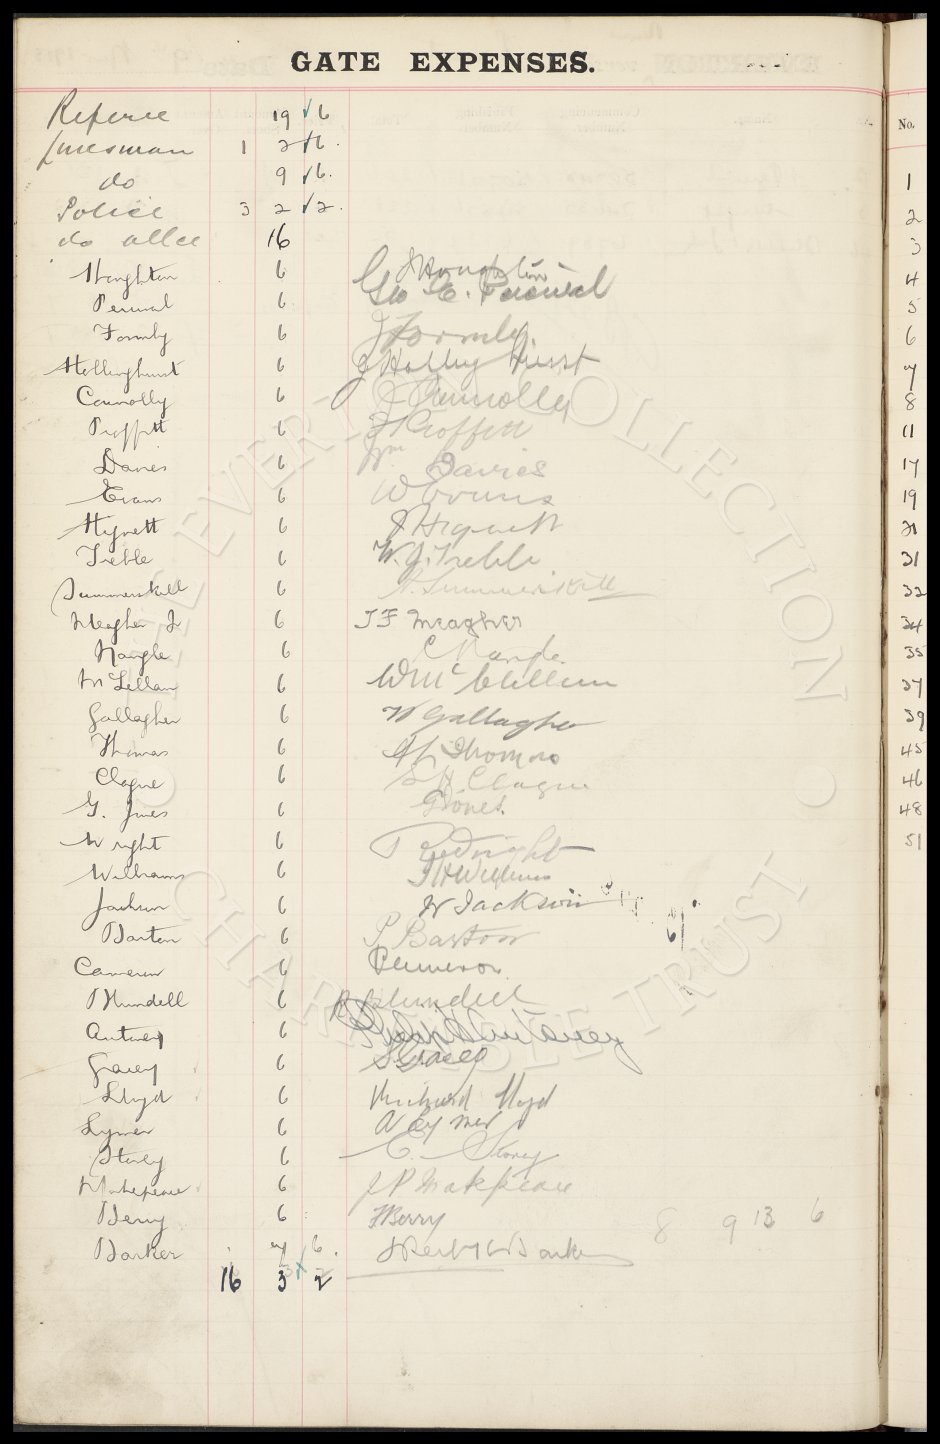 GATE EXPENSES.
Referee 19 6
Linesman 1 2 6
do 9 6
Police 3 2 2
do allce 16
Houghton 6 J Houghton
Percival 6 Geo E. Percival
Formby 6 J Formby
Hollinghurst 6 J Holling Hurst
Connolly 6 J Connolly
Proffitt 6 J Proffitt
Davies 6 Wm Davies
Evans 6 W Evans
Hignett 6 J Hignett
Treble 6 W. J. Treble
Summerskill 6 A. Summerskill
Meagher J 6 J F Meagher
Nangle 6 C Nangle
McLellan 6 W Mc Clellan
Gallagher 6 W Gallagher
Thomas 6 Thomas
Clague 6 S H Clague
G. Jones 6 G Jones.
Wright 6 Wright
Williams 6 J H Williams
Jackson 6 W Jackson
Barton 6 P Barton
Cameron 6 Cameron
Blundell 6 R Blundell
Antwey 6
Gacey 6 S. Gacey
Lloyd 6 Richard Lloyd
Lymer 6 A Lymer
Storey 6 E. Storey
Makepeace 6 J P Makepeace
Berry 6 F Berry 8 9 13 6
Barker 7 6 Barker
16 3 2
No.
1
2
3
4
5
6
7
8
11
17
19
21
31
32
34
35
37
39
45
46
48
51
THE EVERTON COLLECTION
CHARITABLE TRUST